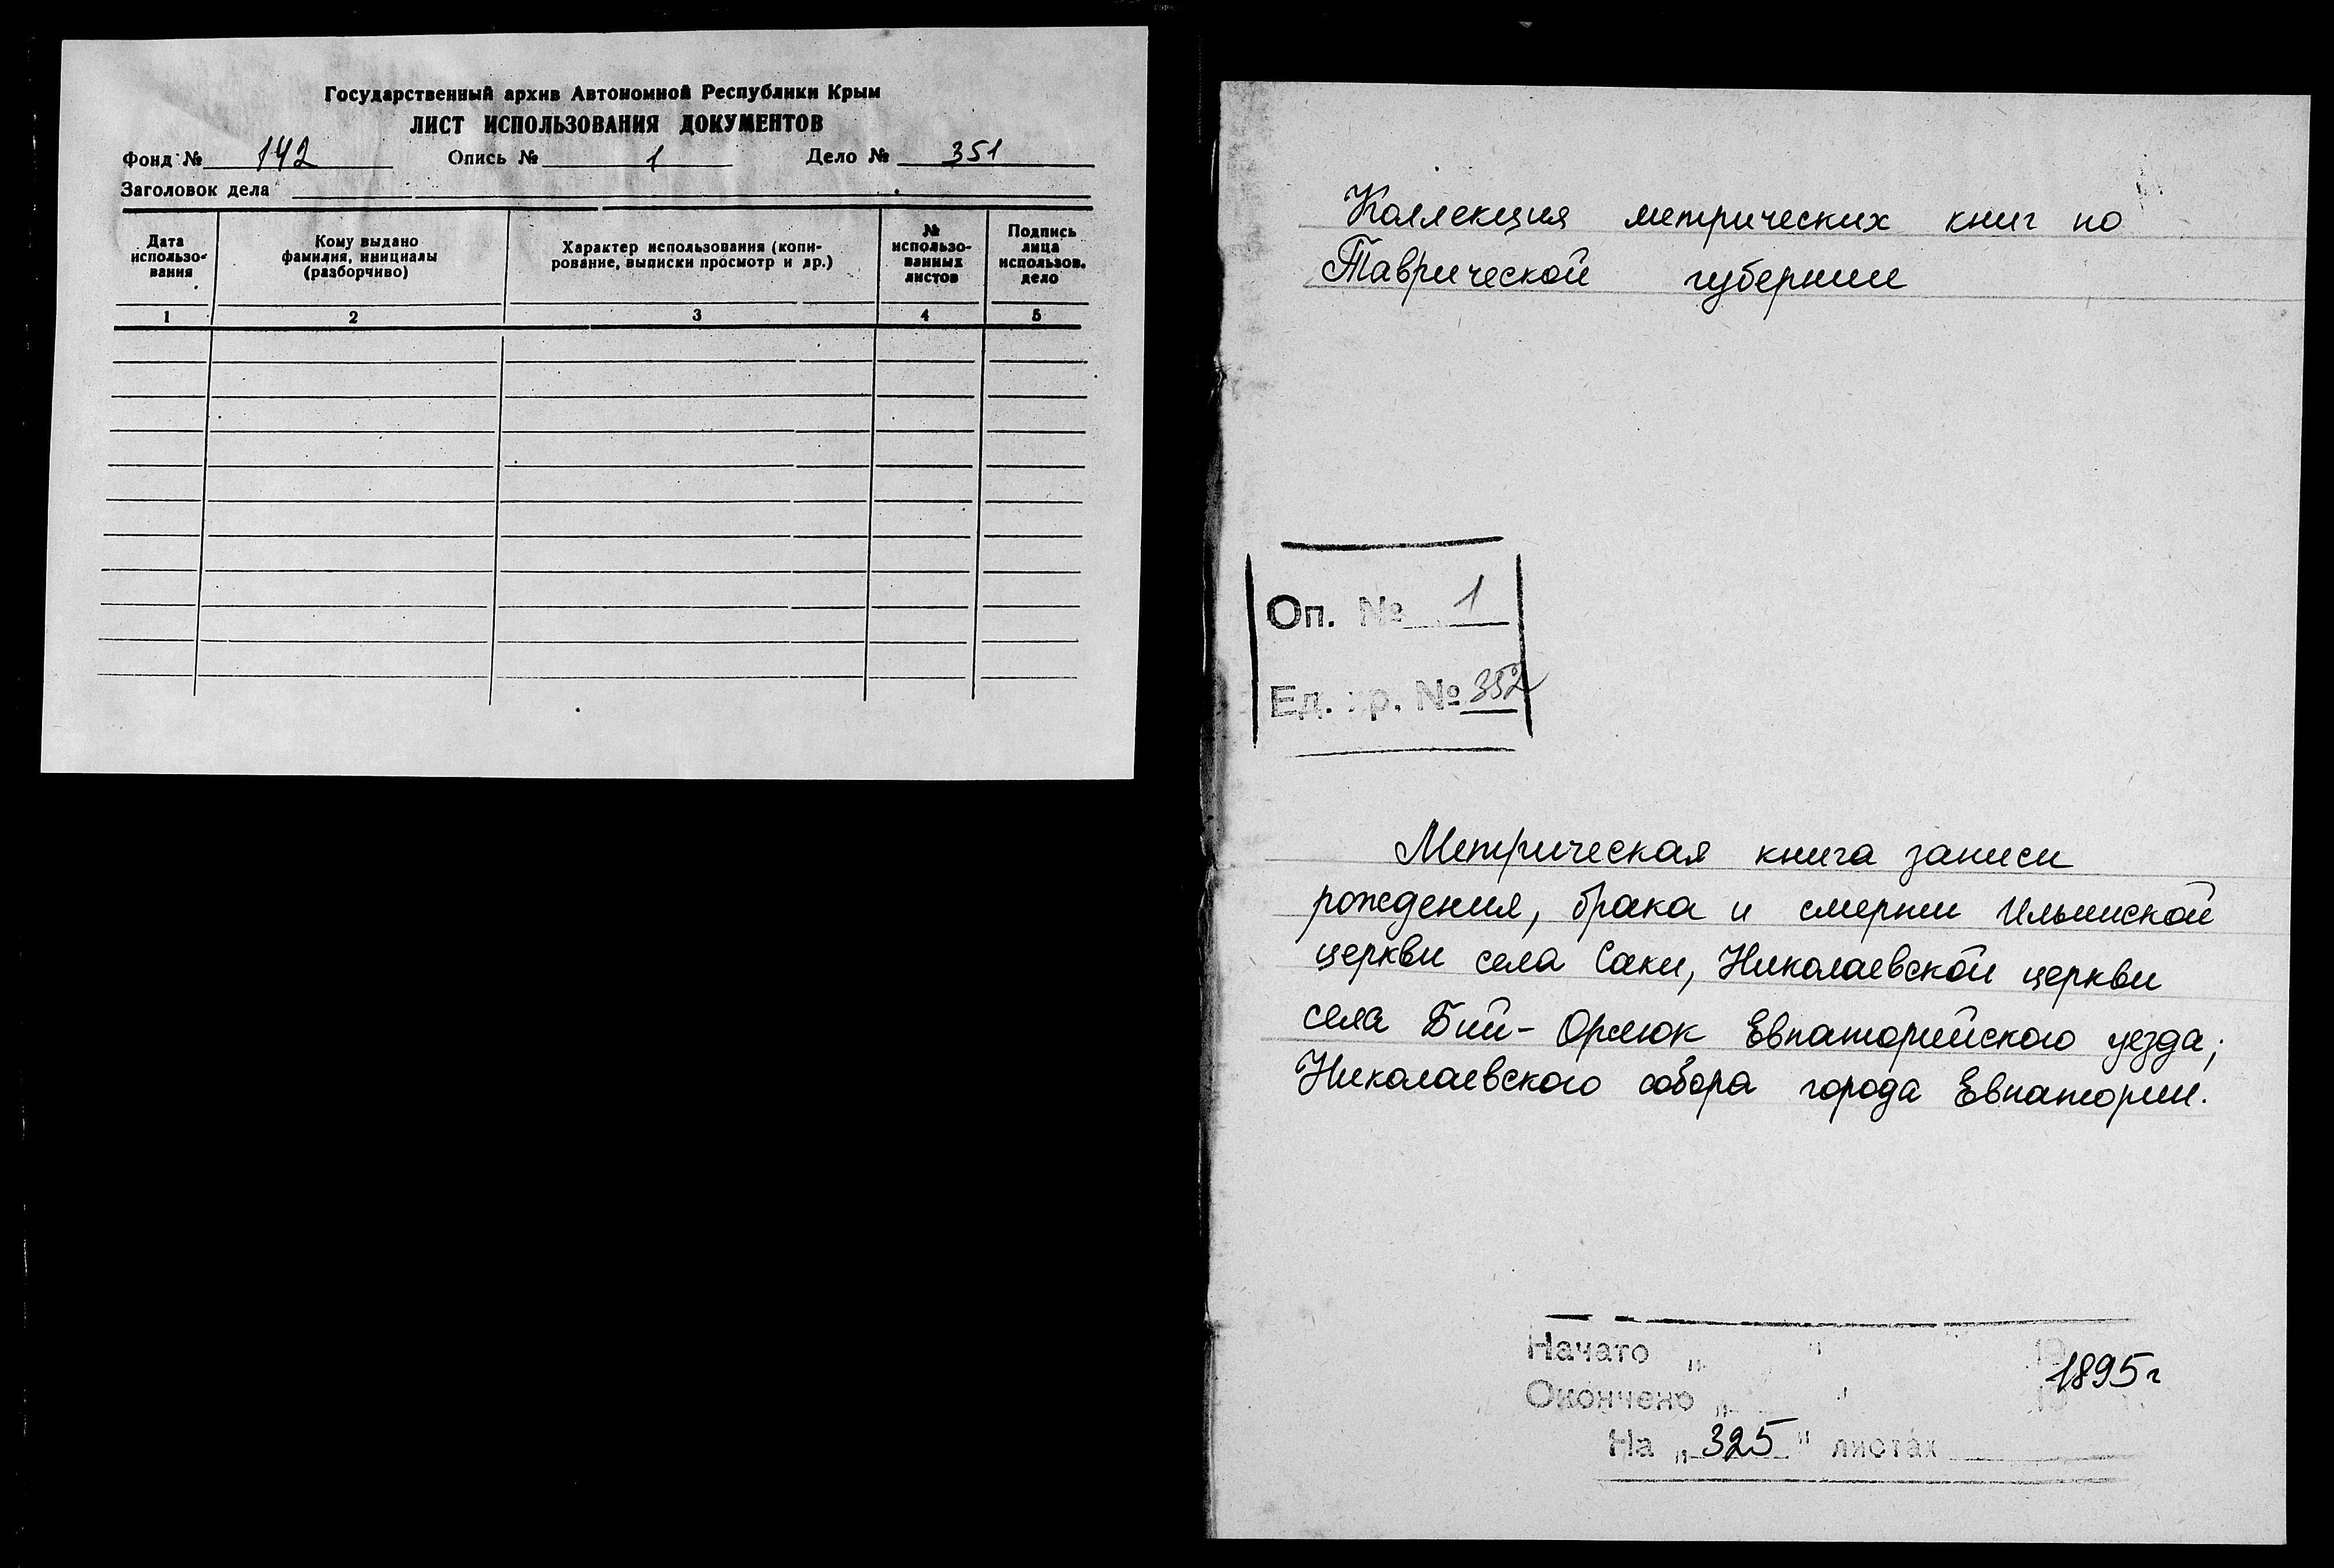 Государственный архив Автономной Республики Крым
ЛИСТ ИСПОЛЬЗОВАНИЯ ДОКУМЕНТОВ
Фонд № 142 Опись № 1 Дело № 351
Заголовок дела
Дата использо-вания
Кому выдано фамилия, инициалы (разборчиво)
Характер использования (копи-рование, выписки просмотр и др.)
№ использо-ванных листов
Подпись лица использов. дело
1 2 3 4 5
Коллекция метрических книг по
Таврической губернии
Оп. № 1
Ед. хр. № 352
Метрическая книга записи
рождения, брака и смерти Ильинской
церкви села Саки, Николаевской церкви
села Бий-Орлюк Евпаторийского уезда;
Николаевского собора города Евпатории.
Начато " " 19
1895г
Окончено " " 19
На "325" листах